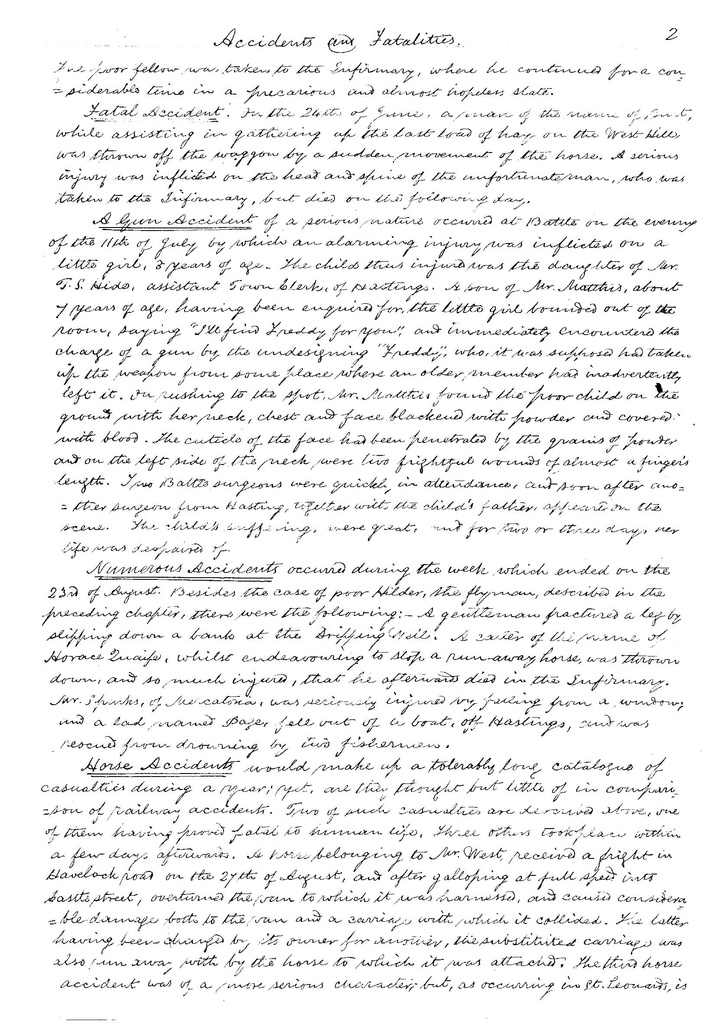 Accidents and Fatalities. 2
The poor fellow was taken to the Infirmary, where he continued for a con-
=siderable time in a precarious and almost hopeless state.
Fatal Accident. On the 24th of June, a man of the name of
while assisting in gathering up the last load of hay on the West Hill
was thrown off the waggon by a sudden movement of the horse. A serious
injury was inflicted on the head and spine of the unfortunate man, who was
taken to the Infirmary, but died on the following day.
A Gun Accident of a serious nature occurred at Battle on the evening
of the 11th of July by which an alarming injury was inflicted on a
little girl, 8 years of age. The child thus injured was the daughter of Mr.
T. S. Hide, assistant Town Clerk, of Hastings. A son of Mr. Matthis, about
7 years of age, having been enquired for, the little girl bounded out of the
room, saying "I'll find Freddy for you", and immediately encountered the
charge of a gun by the undesigning "Freddy", who, it was supposed had taken
up the weapon from some place where an older member had inadvertently
left it. On rushing to the spot, Mr. Matthis found the poor child on the
ground with her neck, chest and face blackened with powder and covered
with blood. The cuticle of the face had been penetrated by the grains of powder
and on the left side of the neck were two frightful wounds of almost a finger's
length. Two Battle surgeons were quickly in attendance, and soon after ano-
=ther surgeon from Hasting, together with the child's father, appeared on the
scene. The child's suffering, were great, and for two or three days her
life was despaired of.
Numerous Accidents occured during the week which ended on the
23rd of August. Besides the case of poor Hilder, the flyman, described in the
preceding chapter, there were the following:- A gentleman fractured a leg by
slipping down a bank at the Dripping Well. A carter of the name of
Horace Quaife, whilst endeavouring to stop a run away horse, was thrown
down, and so much injured, that he afterwards died in the Infirmary.
Mr. Sparks, of Mercatoria, was seriously injured by falling from a window;
and a lad named Page, fell out of a boat, off Hastings, and was
rescued from drowning by two fishermen.
Horse Accidents would make up a tolerably long catalogue of
casualties during a year; yet, are they thought but little of in compari-
=son of railway accidents. Two of such casualties are described above, one
of them having proved fatal to human life. Three others took place within
a few days afterwards. A horse belonging to Mr. West, received a fright in
Havelock road on the 27th of August, and after galloping at full speed into
Castle street, overturned the van to which it was harnessed, and caused considera-
=ble damage both to the van and a carriage with which it collided. The latter
having been changed by its owner for another, the substituted carriage was
also run away with by the horse to which it was attached. The third horse
accident was of a more serious character; but, as occurring in St. Leonards, is